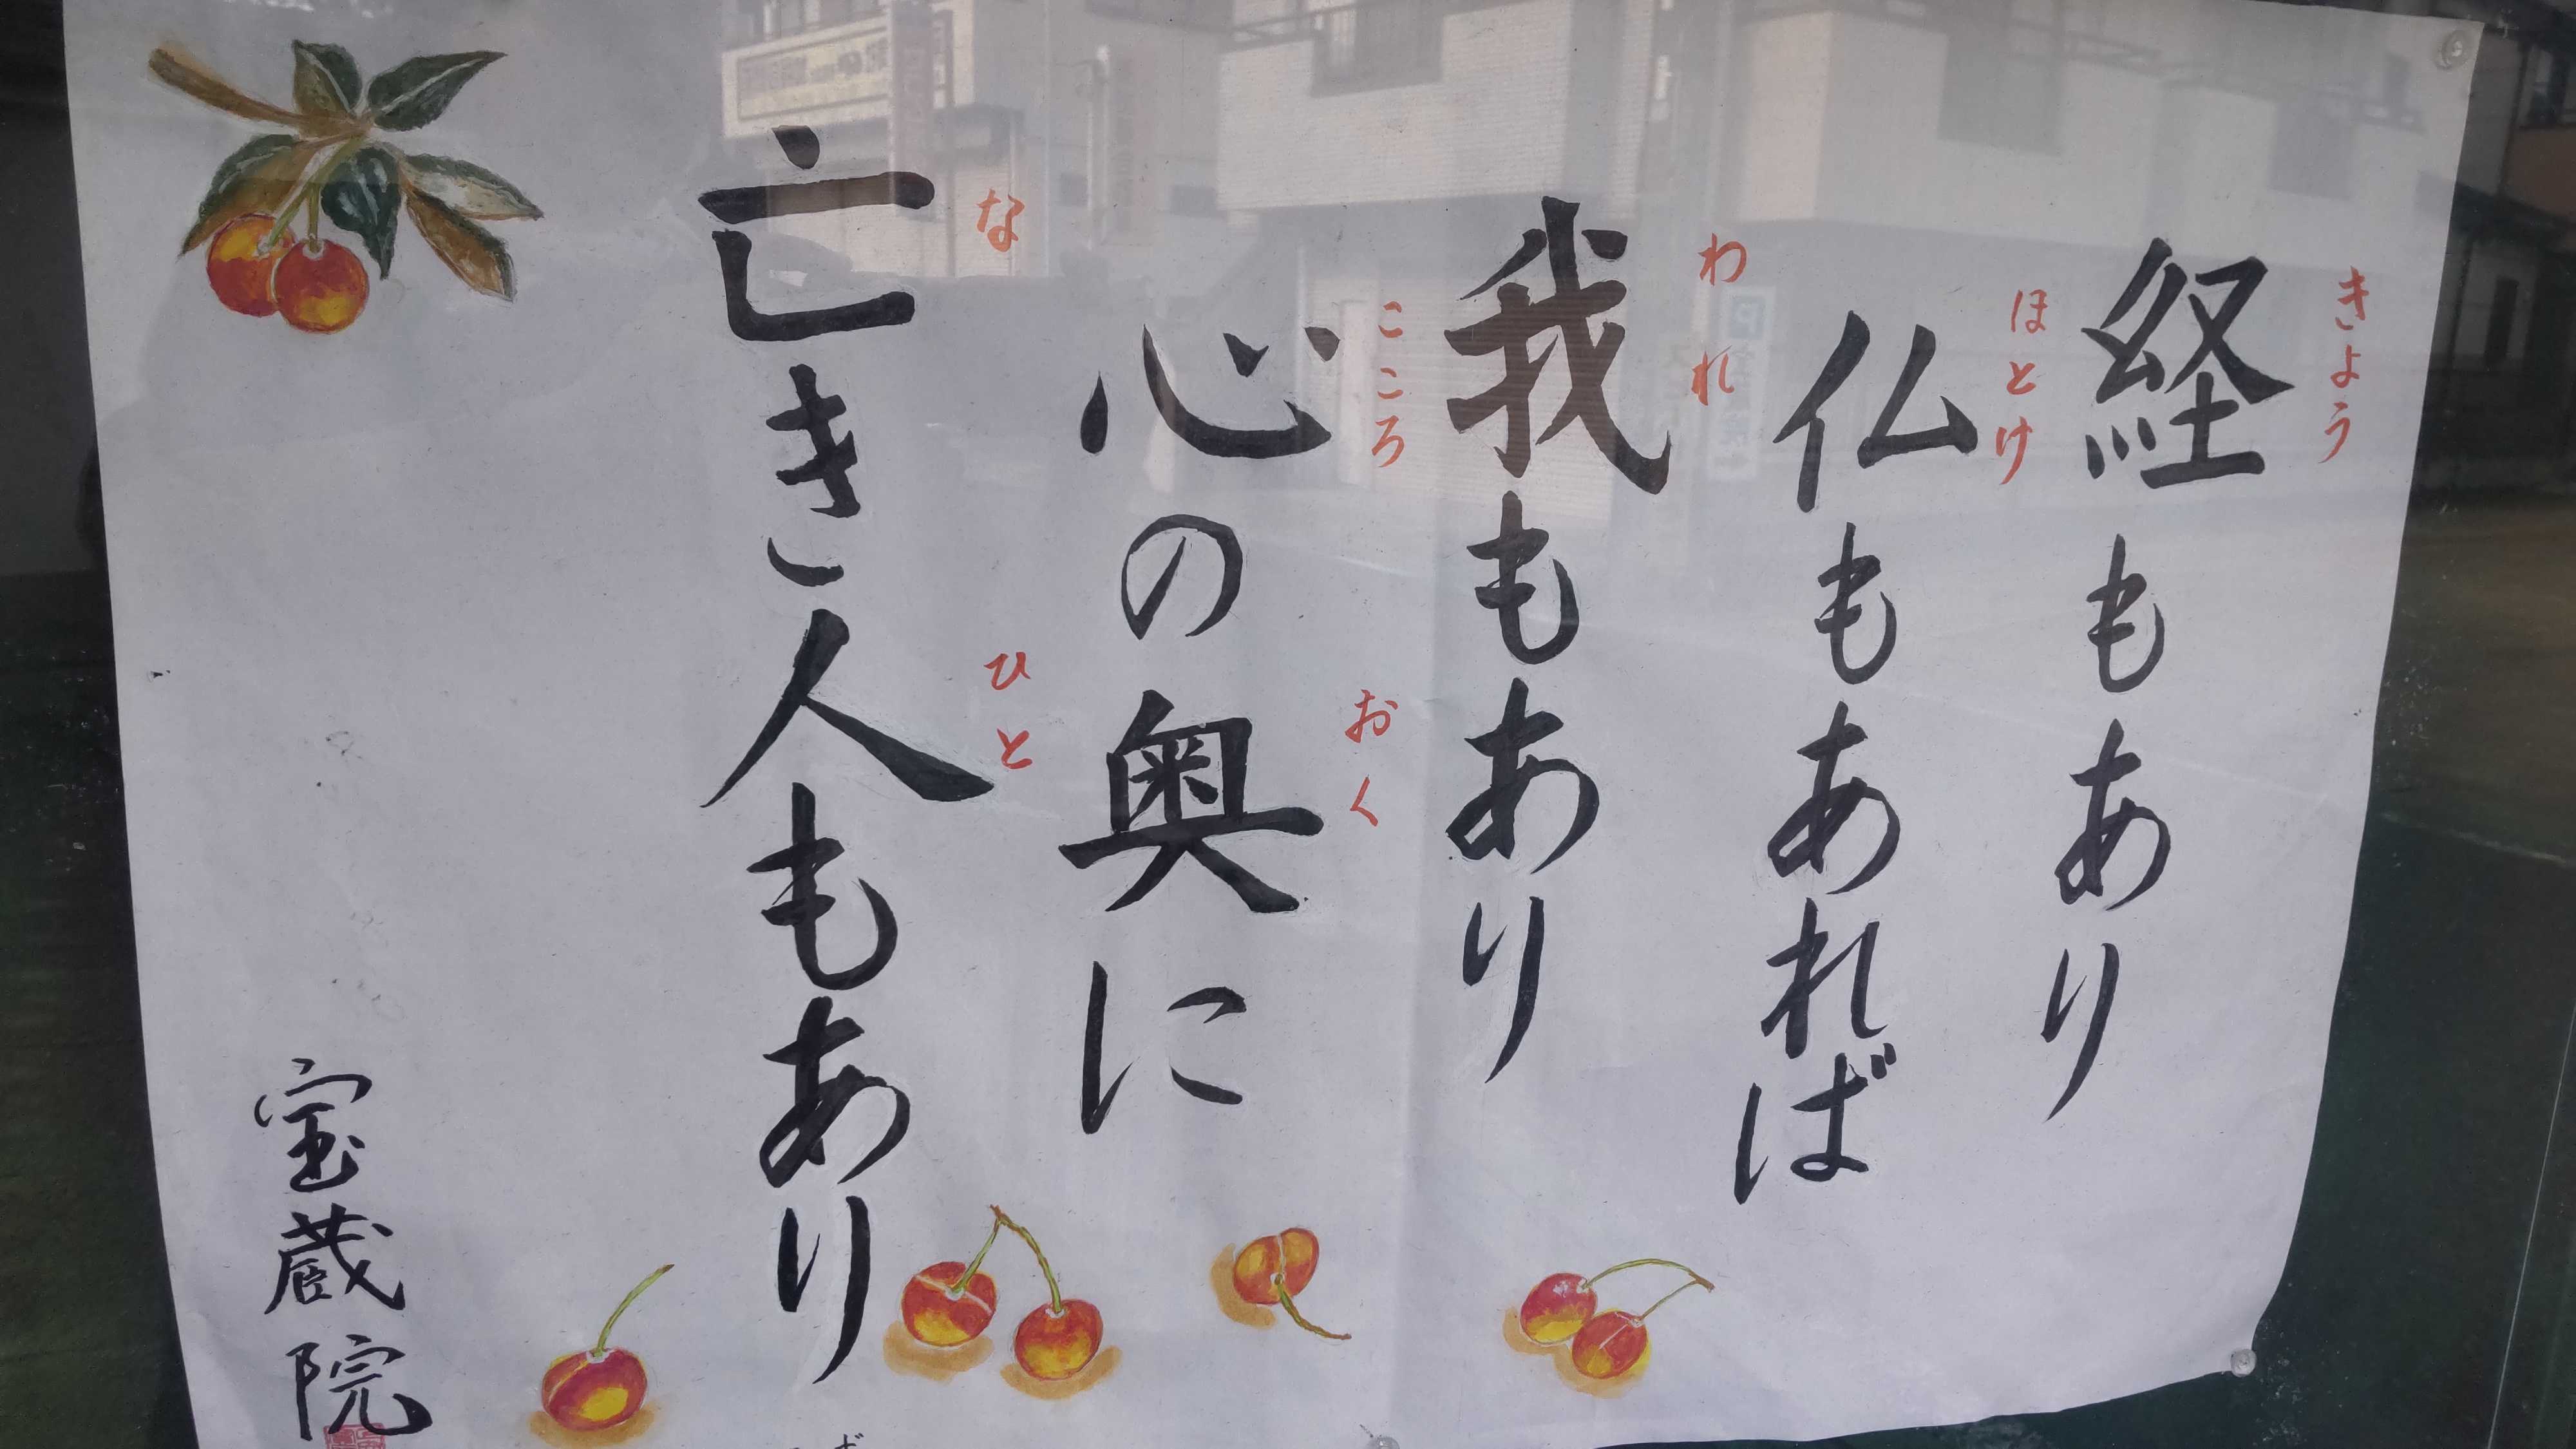 経もあり
きょう
仏もあれば
ほとけ
我もあり
われ
心の奥に
こころ
おく
亡き人もあり
な
ひと
宝蔵院